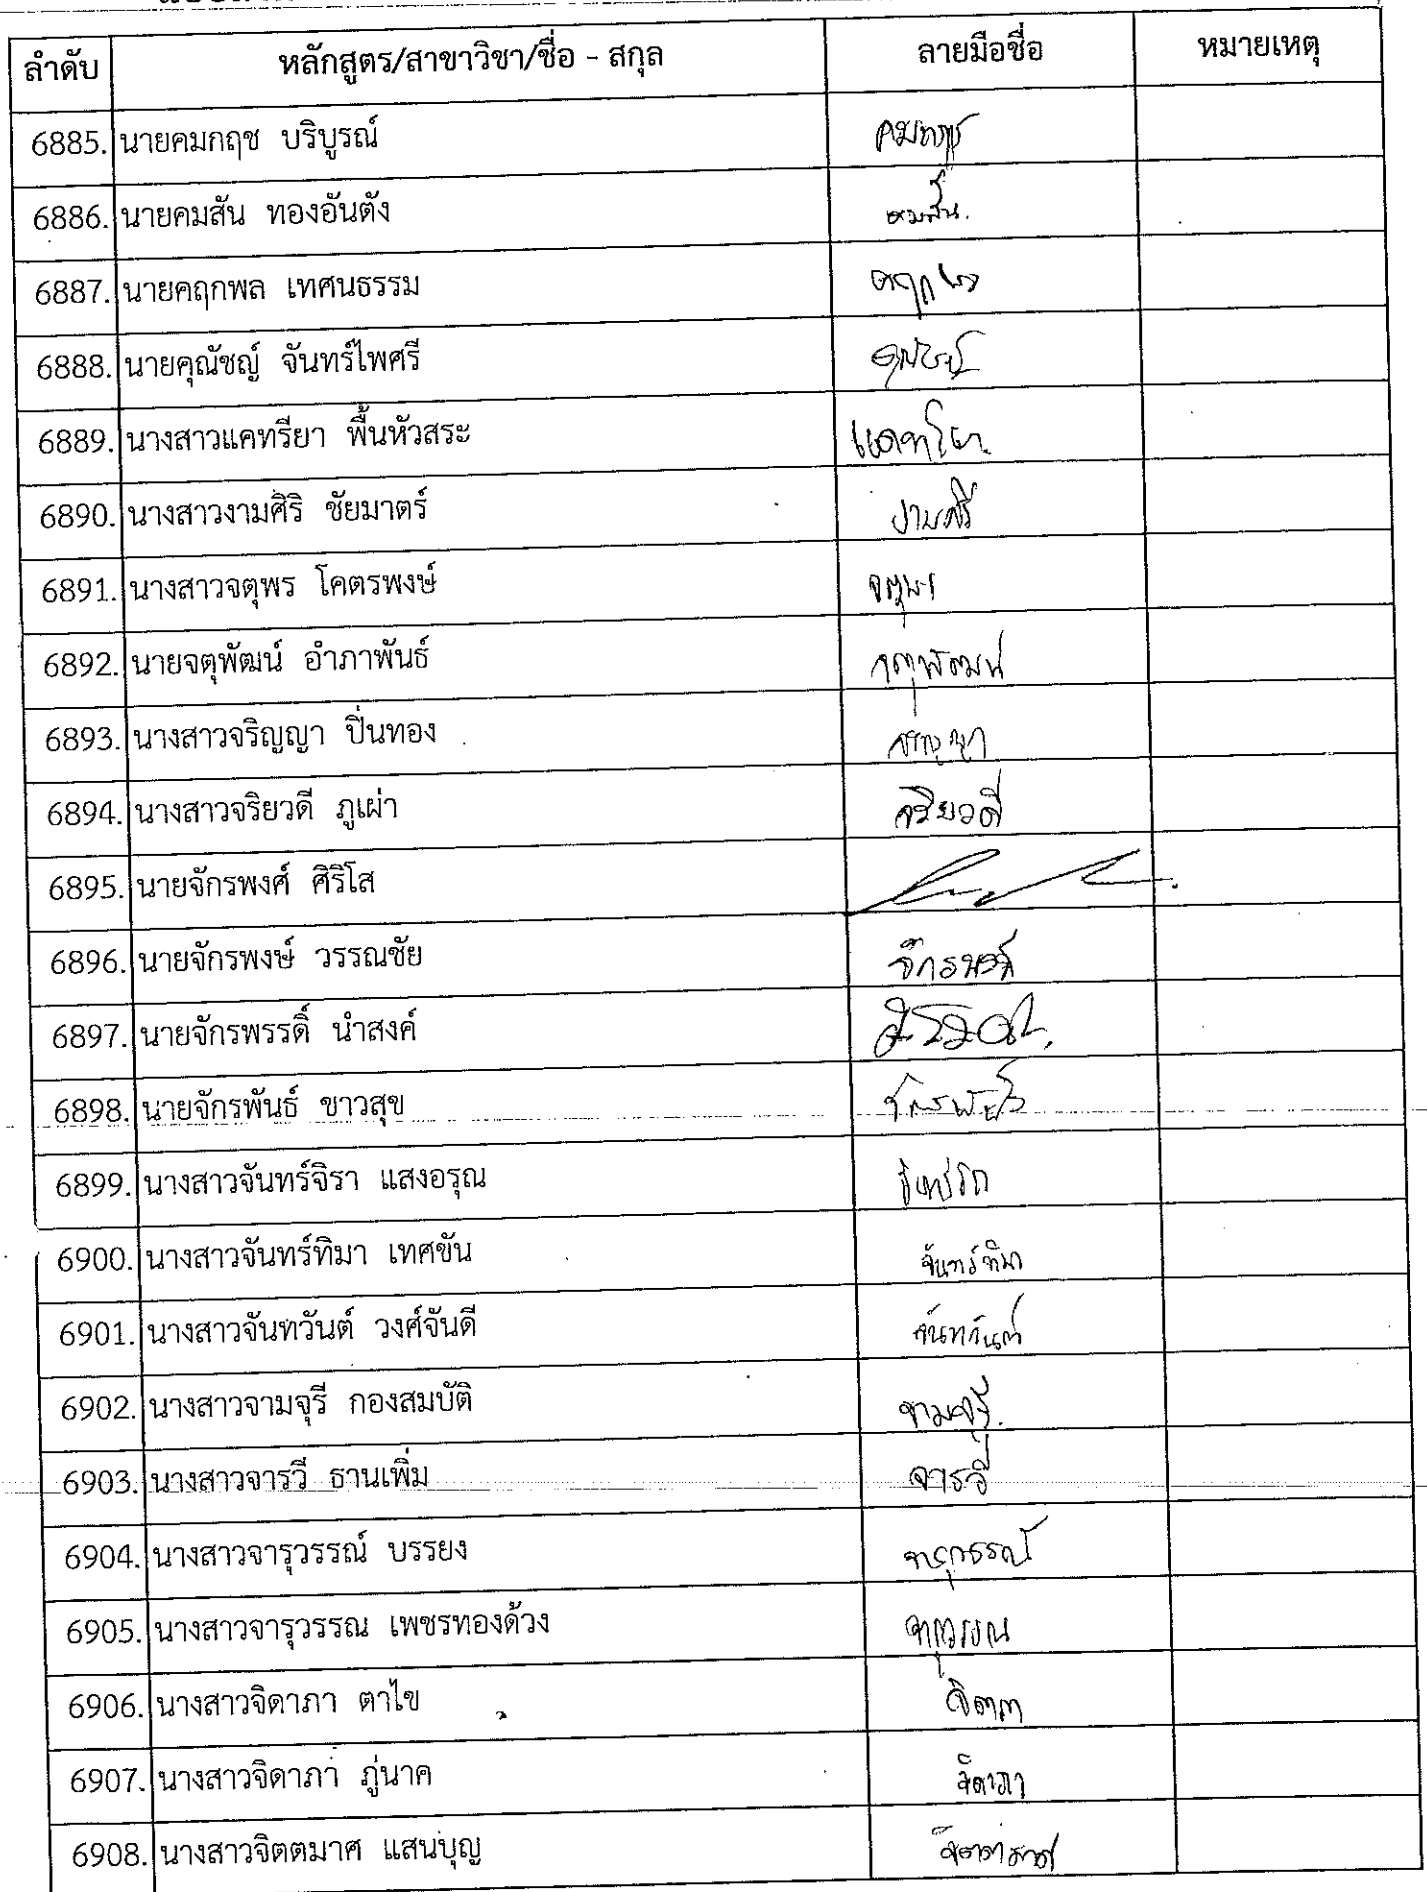 ลำดับ หลักสูตร/สาขาวิชา/ชื่อ - สกุล ลายมือชื่อ หมายเหตุ
6885. นายคมกฤช บริบูรณ์ คมกฤช
6886. นายคมสัน ทองอันตัง คมสัน.
6887. นายคฤกพล เทศนธรรม คฤกพล
6888. นายคุณัชญ์ จันทร์ไพศรี คุณัชญ์
6889. นางสาวแคทรียา พื้นหัวสระ แคทรียา.
6890. นางสาวงามศิริ ชัยมาตร์ งามศิริ
6891. นางสาวจตุพร โคตรพงษ์ จตุพร
6892. นายจตุพัฒน์ อำภาพันธ์ จตุพัฒน์
6893. นางสาวจริญญา ปิ่นทอง จริญญา
6894. นางสาวจริยวดี ภูเผ่า จริยวดี
6895. นายจักรพงศ์ ศิริโส
6896. นายจักรพงษ์ วรรณชัย จักรพงษ์
6897. นายจักรพรรดิ์ นำสงค์
6898. นายจักรพันธ์ ขาวสุข จักรพันธ์
6899. นางสาวจันทร์จิรา แสงอรุณ จันทร์จิรา
6900. นางสาวจันทร์ทิมา เทศขัน จันทร์ทิมา
6901. นางสาวจันทวันต์ วงศ์จันดี จันทวันต์
6902. นางสาวจามจุรี กองสมบัติ จามจุรี.
6903. นางสาวจารวี ธานเพิ่ม จารวี
6904. นางสาวจารุวรรณ์ บรรยง จารุวรรณ์
6905. นางสาวจารุวรรณ เพชรทองด้วง จารุวรรณ
6906. นางสาวจิดาภา ตาไข จิดาภา
6907. นางสาวจิดาภา ภู่นาค จิดาภา
6908. นางสาวจิตตมาศ แสนบุญ จิตตมาศ